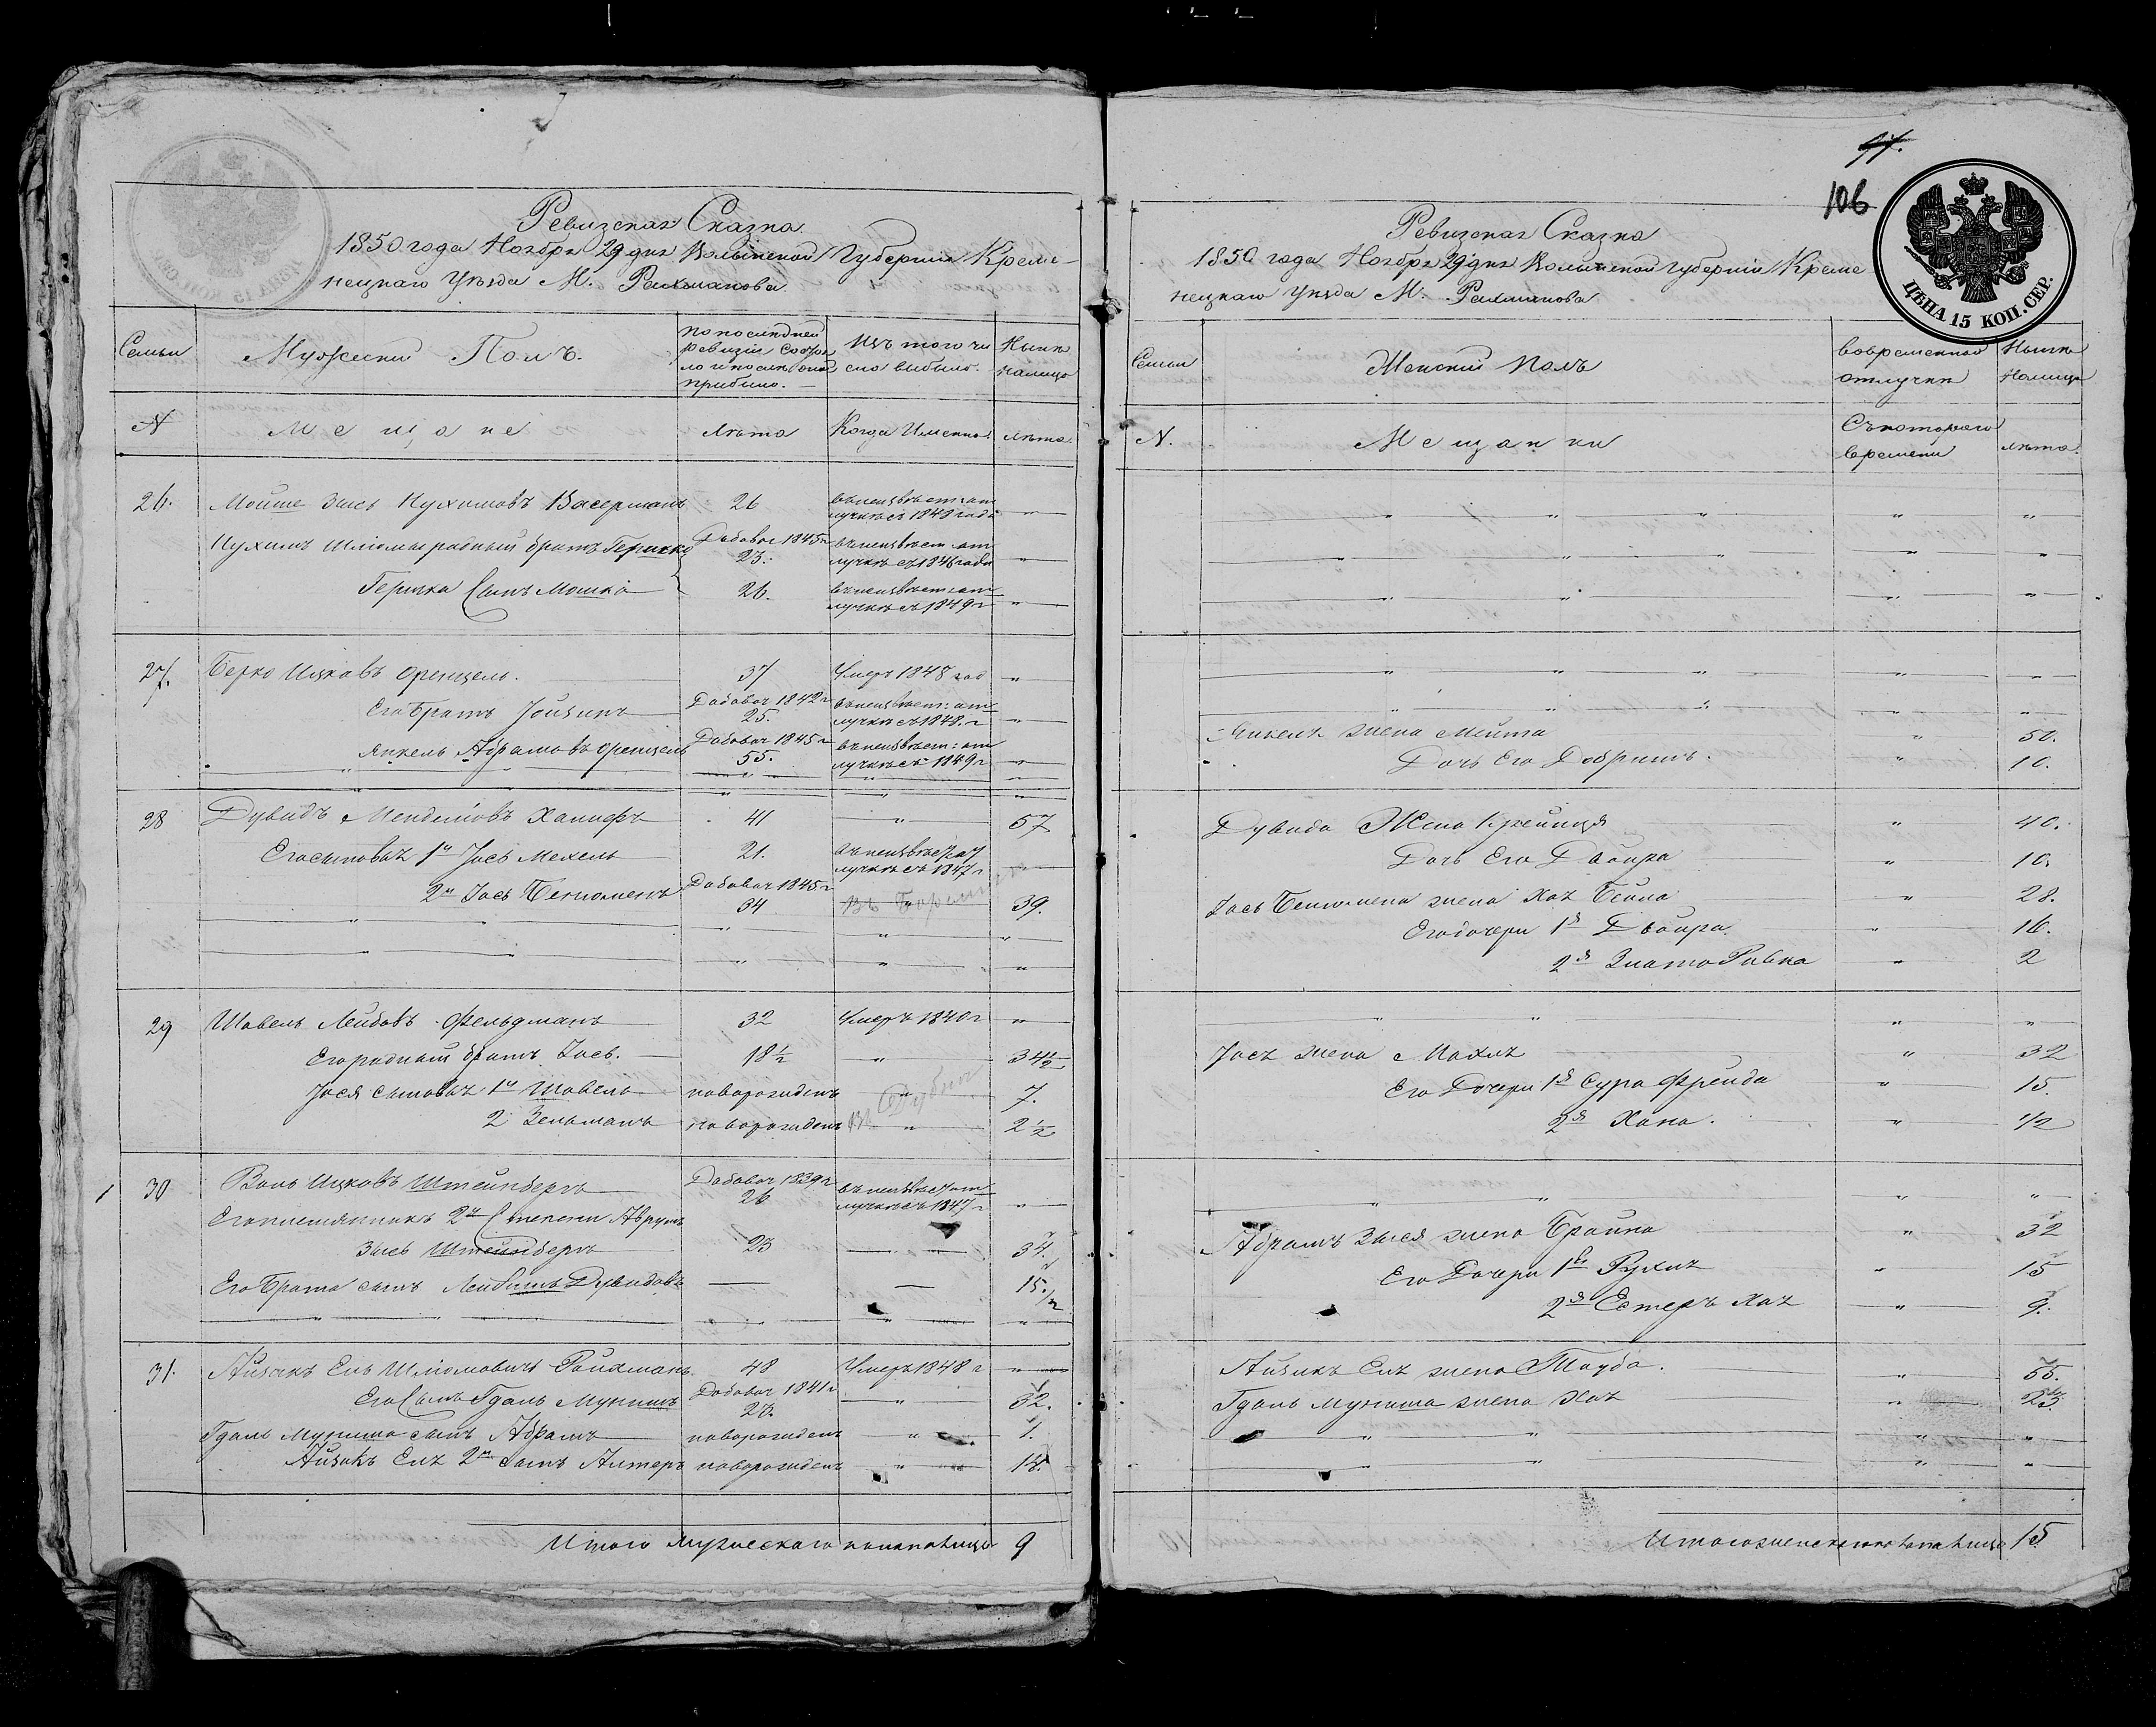 Ревизская Сказка
1850 года Ноября 29 дня Волынской Губернии Креме-
нецкаго Уѣзда М. Рахманова
Семьи
Мужеский Полъ.
По последней ревизіи состоя ло и после оной прибыло.
Изъ того чи сла выбыло.
Нынѣ налицо
№
Мещане
Лѣта
Когда Именно
лѣта.
26. Мойше Зись Нухимовъ Васерманъ 26 въ неизвѣст: от лучкѣ съ 1849 года "
Нухимъ Шліомы родный братъ Гершко Добавоч 1845 г 23. въ неизвѣст: от лучкѣ съ 1846 года "
Гершка Сынъ Мошко 26. въ неизвѣст: от лучкѣ съ 1849 г "
27. Берко Ицковъ Френцель. 37 Умеръ 1848 год "
Его Братъ Іойзипъ Добавоч 1842 г 25. въ неизвѣст: от лучкѣ съ 1848. г "
Янкель Абрамовъ Френцель Добавоч 1845 г 55. въ неизвѣст: от лучкѣ съ 1849 г "
28 Дувидъ Менделіовъ 41 " 57
Его сыновья 1й Іось Мехель 21. въ неизвѣс: от лучкѣ съ 1847 г "
2й Іось Беніоменъ Добавоч 1845 г 34 " 39.
29 Шавель Лейбовъ Фельдманъ 32 Умеръ 1840 г "
Его родный братъ Іось. 18 1/2 " 34 1/2
Іося сыновья 1й Шавель новорожденъ " 7.
2 Зельманъ новорожденъ въ Дубни " 2 1/2
30 Воль Ицковъ Штейнберъ Добавоч 1839 г 26 въ неизвѣс: от лучкѣ съ 1847 г "
Его племянникъ 2й Степени Аврумъ
Зись Штейнберъ 23 — 34.
Его Брата сынъ Лейбишъ Дувидовъ — — 15. 1/2
31. Айзикъ Ель Шліомовичъ Ройхманъ 48 Умеръ 1848 г "
Его Сынъ Гдаль Мунишъ Добавоч 1841 г 23. " 32.
Гдаль Муниша сынъ Абрамъ новорожденъ " 1.
Айзикъ Еля 2й сынъ Алтеръ новорожденъ " 14.
Итого мужескаго пола налицо 9
97.
106
ЦѢНА 15 КОП. СЕР.
Ревизская Сказка
1850 года Ноября 29 дня Волынской губерніи Креме
нецкаго Уѣзда М. Рахманова
Семьи
Женский Полъ
Во временной отлучкѣ
Нынѣ налицо
№.
Мещанки
Съ котораго времени
лѣта.
Янкеля жена Мейта " 50.
Дочь Его Добришъ. " 10.
Дувида Жена Крейнця " 40.
Дочь Его Двойра " 10.
Іось Беніомена жена Хая Бейла " 28.
Его дочери 1я Двойра " 16.
2я Злато Ривка " 2
Іося жена Махля " 32
Его Дочери 1я Сура Фрейда " 15.
2я Хана. " 1/2
Абрамъ Зися жена Брайна " 32
Его Дочери 1я Рухля " 15
2я Естеръ Хая " 9.
Айзикъ Еля жена Тауба. " 55.
Гдаль Муниша жена Хая " 23.
Итого женскаго пола налицо 15